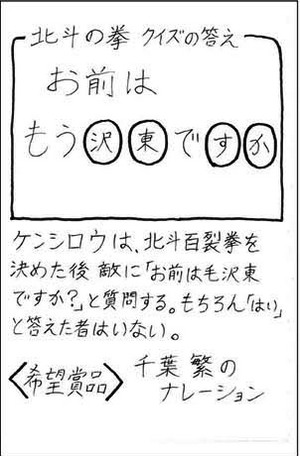 北斗の拳 クイズの答え
お前は
もう沢東ですか
ケンシロウは、北斗百裂拳を
決めた後 敵に「お前は毛沢東
ですか?」と質問する。もちろん「はい」
と答えた者はいない。
〈希望賞品〉 千葉 繁の
ナレーション